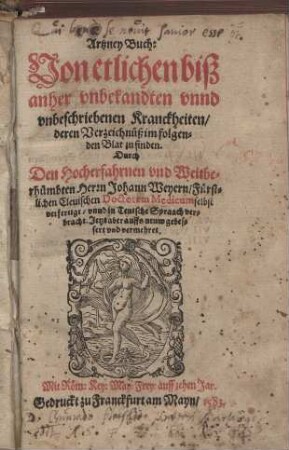 Artzney Buch:
Von etlichen biß
anher vnbekandten vnnd
vnbeschriebenen Kranckheiten/
deren Verzeichnüß im folgen-
den Blat zu finden.
Durch
Den Hocherfahrnen vnd Weitbe-
rhümbten Herrn Johann Weyern/ Fürst-
lichen Cleuischen Doctorem Medicum selbst
verfertigt/ vnnd in Teutsche Sprach ver-
bracht. Jetzt aber auffs neuw gebes-
sert vnd vermehret.
Mit Röm: Key: May: Frey: auff zehen Jar.
Gedruckt zu Franckfurt am Mayn/ 1583.